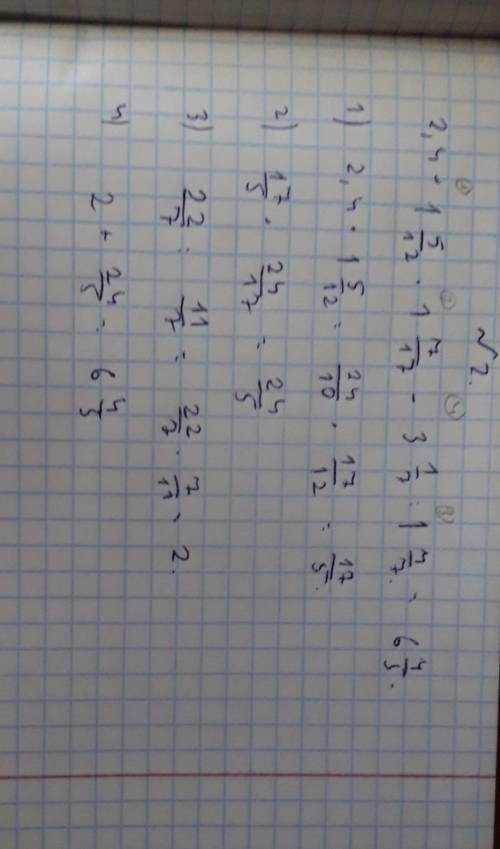 № 2.
2,4 · 1 5/12 · 1 7/17 - 3 1/7 : 1 4/7 = 6 4/5.
1) 2,4 · 1 5/12 = 24/10 · 17/12 = 17/5.
2) 17/5 · 24/17 = 24/5
3) 22/7 : 11/7 = 22/7 · 7/11 = 2.
4) 2 + 24/5 = 6 4/5